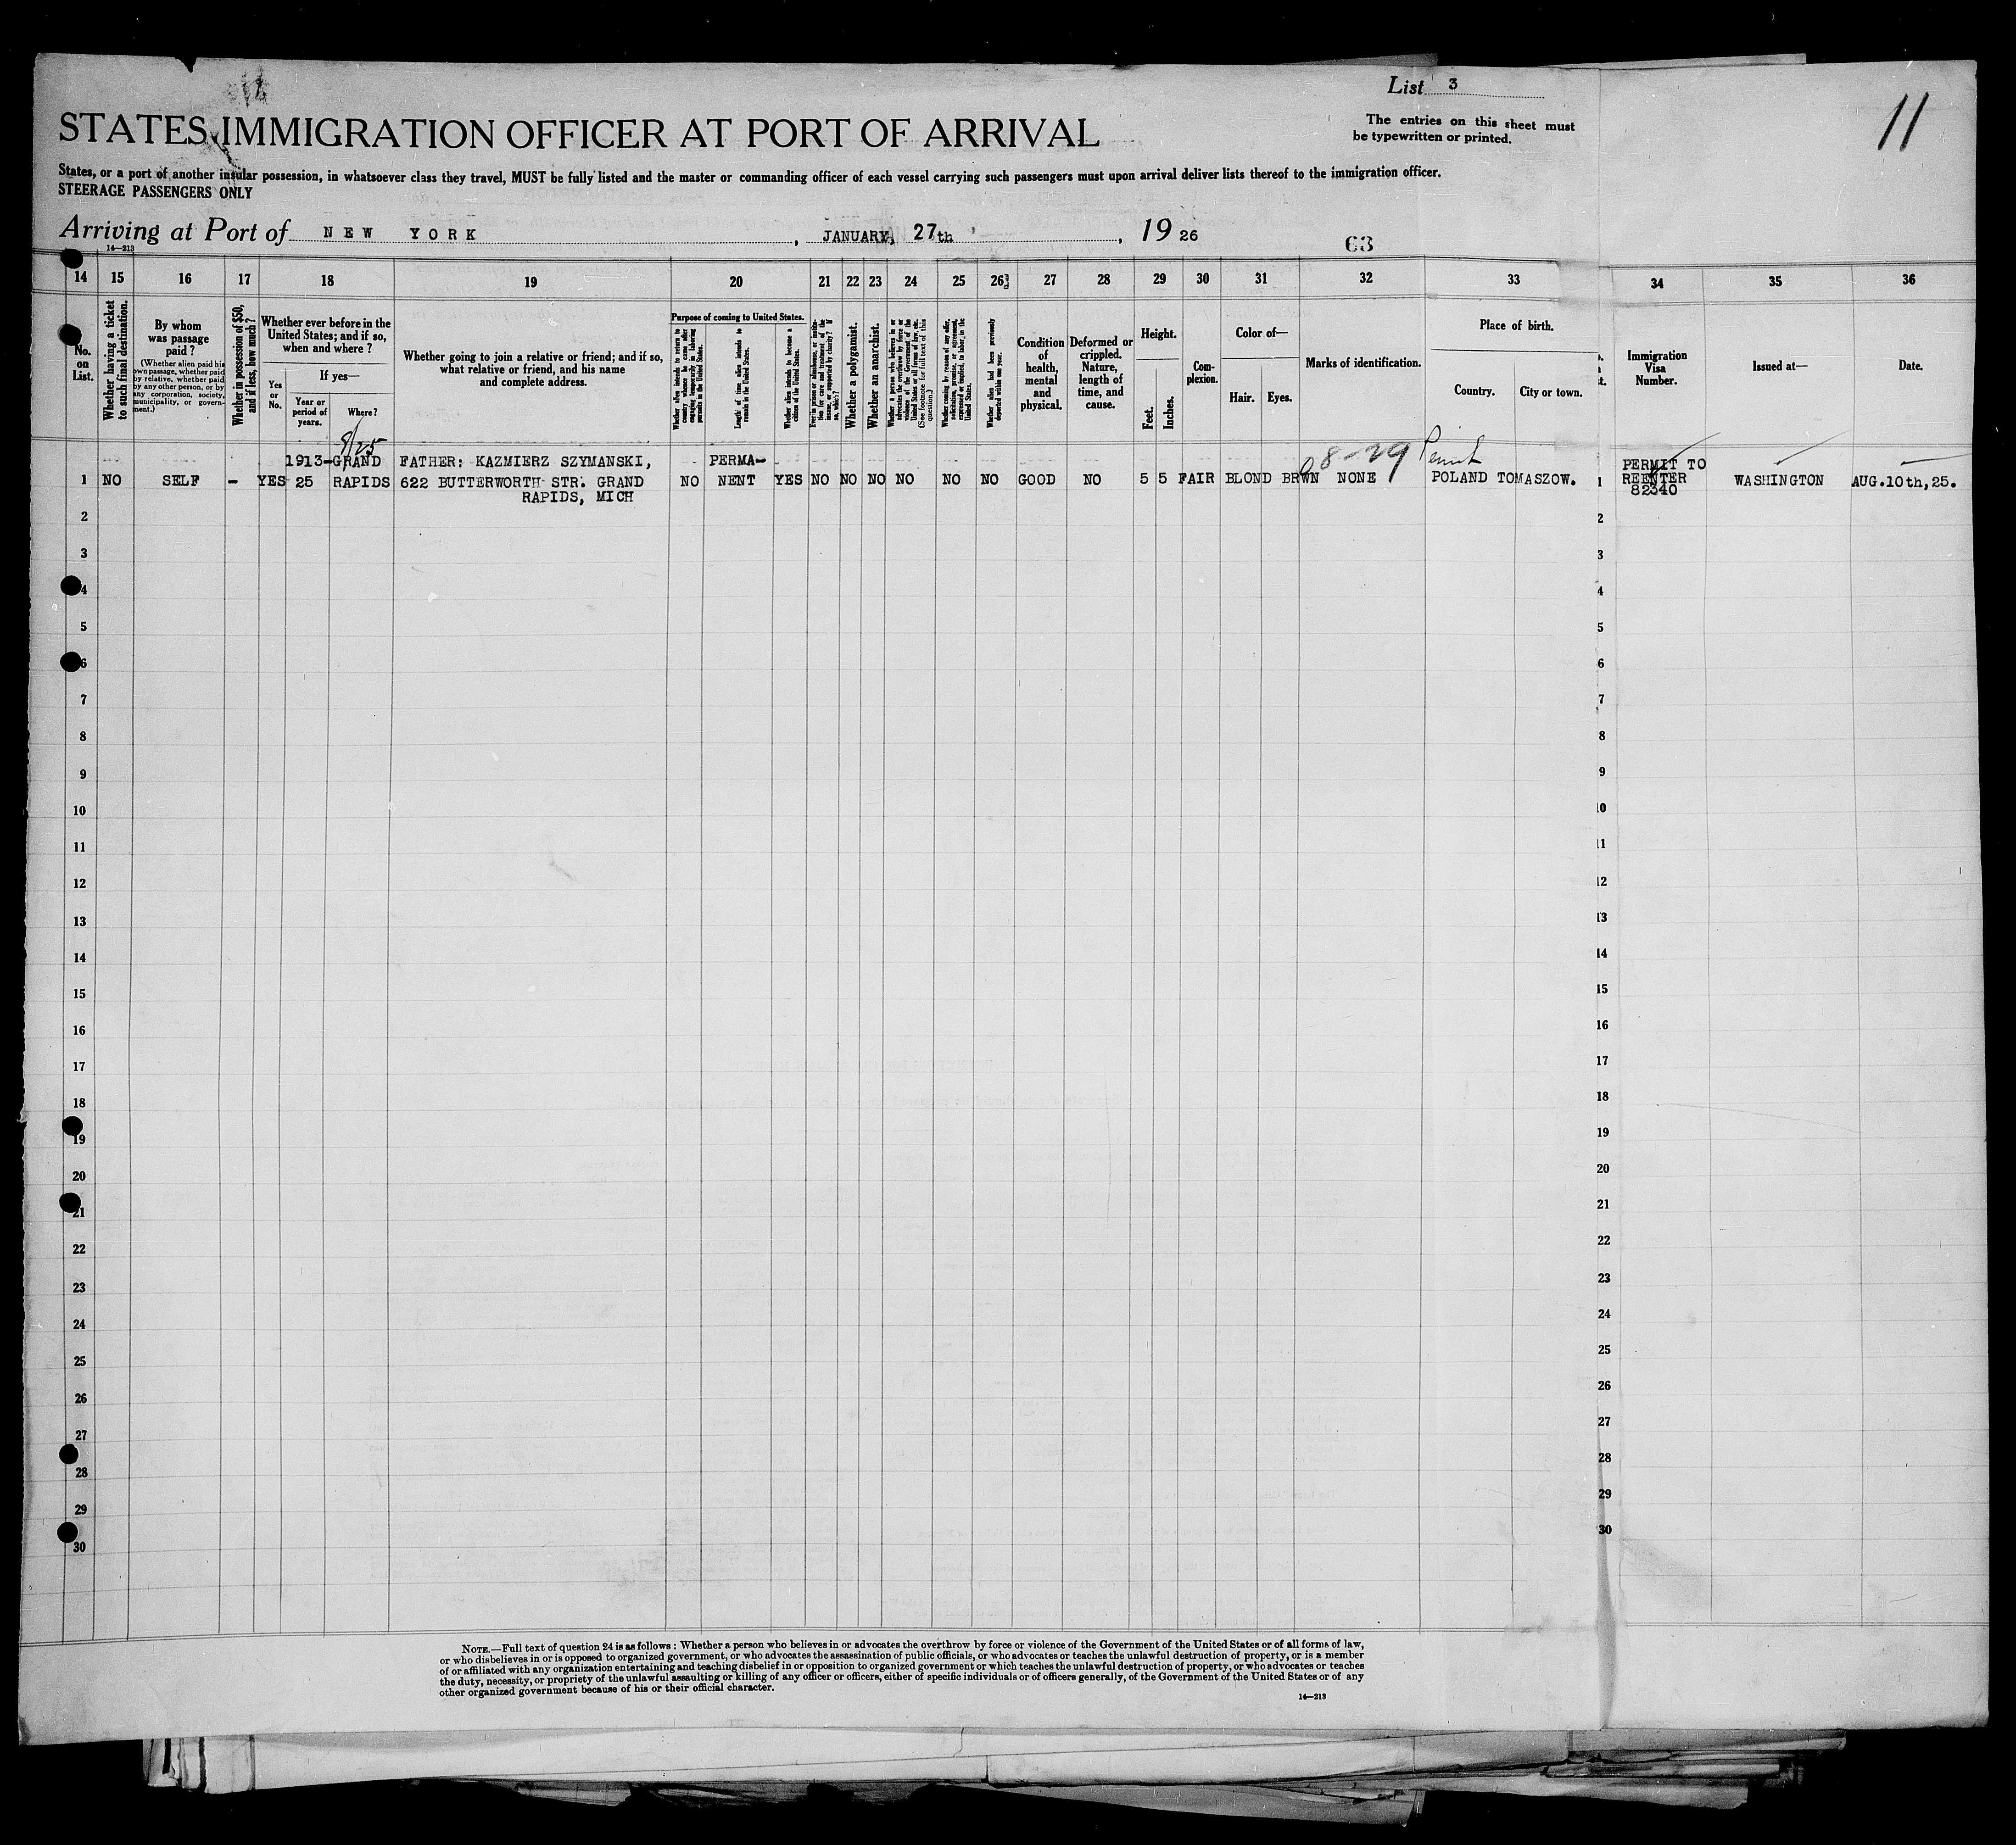 List 3
11
STATES IMMIGRATION OFFICER AT PORT OF ARRIVAL
The entries on this sheet must
be typewritten or printed.
States, or a port of another insular possession, in whatsoever class they travel, MUST be fully listed and the master or commanding officer of each vessel carrying such passengers must upon arrival deliver lists thereof to the immigration officer.
STEERAGE PASSENGERS ONLY
Arriving at Port of NEW YORK, JANUARY, 27th, 19 26
14—213
63
14 15 16 17 18 19 20 21 22 23 24 25 26 27 28 29 30 31 32 33 34 35 36
No. on List.
Whether having a ticket to such final destination.
By whom was passage paid?
(Whether alien paid his own passage, whether paid by relative, whether paid by any other person, or by any corporation, society, municipality, or government.)
Whether in possession of $50, and if less, how much?
Whether ever before in the United States; and if so, when and where?
Yes or No.
If yes—
Year or period of years.
Where?
Whether going to join a relative or friend; and if so, what relative or friend, and his name and complete address.
Purpose of coming to United States.
Length of time alien intends to remain in the United States.
Whether alien intends to become a citizen of the United States.
Whether a polygamist.
Whether an anarchist.
Condition of health, mental and physical.
Deformed or crippled. Nature, length of time, and cause.
Height.
Feet.
Inches.
Complexion.
Color of—
Hair.
Eyes.
Marks of identification.
Place of birth.
Country.
City or town.
Immigration Visa Number.
Issued at—
Date.
8/25
08-29
Permit
1913-GRAND FATHER: KAZMIERZ SZYMANSKI, PERMA- PERMIT TO
1 NO SELF - YES 25 RAPIDS 622 BUTTERWORTH STR. GRAND NO NENT YES NO NO NO NO NO NO GOOD NO 5 5 FAIR BLOND BRWN NONE POLAND TOMASZOW. 1 REENTER WASHINGTON AUG.10th,25.
RAPIDS, MICH 82340
2 2
3 3
4 4
5 5
6 6
7 7
8 8
9 9
10 10
11 11
12 12
13 13
14 14
15 15
16 16
17 17
18 18
19 19
20 20
21 21
22 22
23 23
24 24
25 25
26 26
27 27
28 28
29 29
30 30
NOTE.—Full text of question 24 is as follows: Whether a person who believes in or advocates the overthrow by force or violence of the Government of the United States or of all forms of law,
or who disbelieves in or is opposed to organized government, or who advocates the assassination of public officials, or who advocates or teaches the unlawful destruction of property, or is a member
of or affiliated with any organization entertaining and teaching disbelief in or opposition to organized government or which teaches the unlawful destruction of property, or who advocates or teaches
the duty, necessity, or propriety of the unlawful assaulting or killing of any officer or officers, either of specific individuals or of officers generally, of the Government of the United States or of any
other organized government because of his or their official character.
14—213